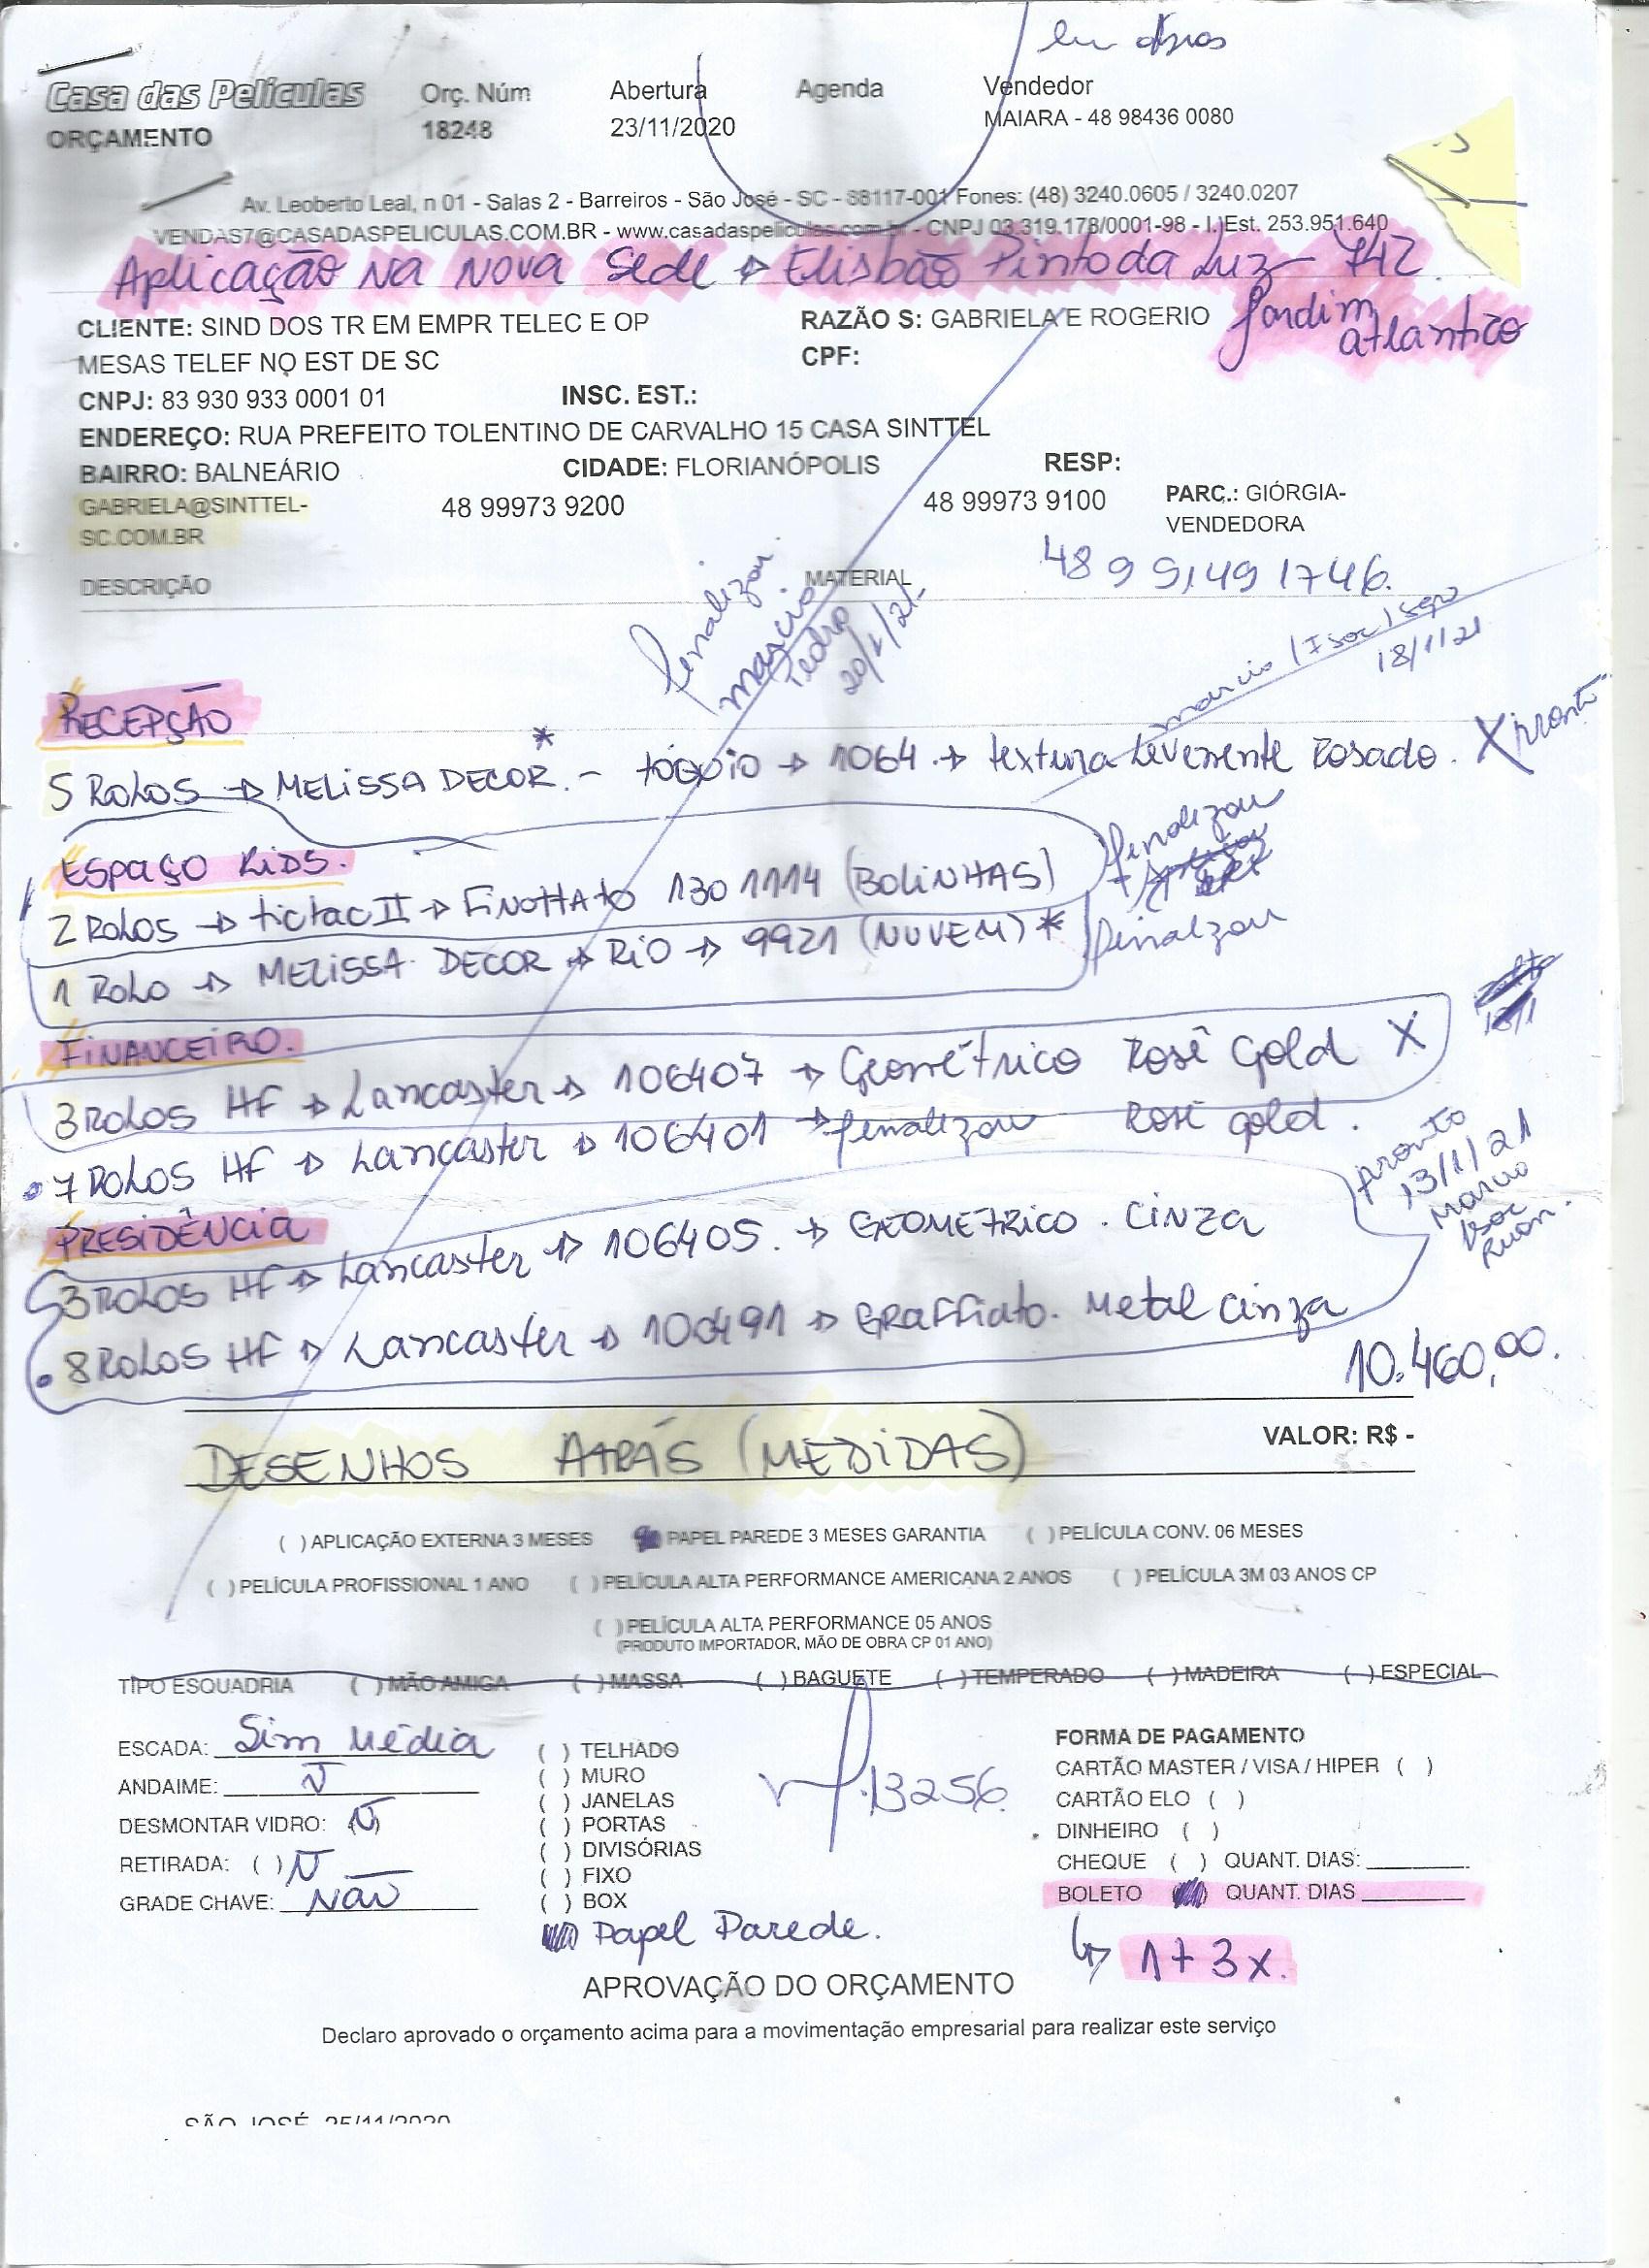 Casa das Películas
ORÇAMENTO
Orç. Núm
18248
Abertura
23/11/2020
Agenda
Vendedor
MAIARA - 48 98436 0080
Av. Leoberto Leal, n 01 - Salas 2 - Barreiros - São José - SC - 88117-001 Fones: (48) 3240.0605 / 3240.0207
VENDAS7@CASADASPELICULAS.COM.BR - www.casadaspeliculas.com.br - CNPJ 03.319.178/0001-98 - I. Est. 253.951.640
Aplicação na nova Sede → Elisbão Pinto da Luz - 742
Jardim
atlantico
CLIENTE: SIND DOS TR EM EMPR TELEC E OP
MESAS TELEF NO EST DE SC
RAZÃO S: GABRIELA E ROGERIO
CPF:
CNPJ: 83 930 933 0001 01 INSC. EST.:
ENDEREÇO: RUA PREFEITO TOLENTINO DE CARVALHO 15 CASA SINTTEL
BAIRRO: BALNEÁRIO CIDADE: FLORIANÓPOLIS RESP:
GABRIELA@SINTTEL-
SC.COM.BR
48 99973 9200
48 99973 9100
PARC.: GIÓRGIA-
VENDEDORA
48 99149 1746
DESCRIÇÃO MATERIAL
finalizou
marcio
Pedro
20/1/21
marcio
18/1/21
RECEPÇÃO
5 Rolos → MELISSA DECOR. - tóquio → 1064 → textura levemente Rosado. X pronto
ESPAÇO KIDS.
2 Rolos → tictac II → Finottato 1301114 (BOLINHAS) finalizou
1 Rolo → MELISSA DECOR → Rio → 9921 (NUVEM) * finalizou
FINANCEIRO.
3 Rolos HF → Lancaster → 106407 → Geométrico Rosê Gold X
7 Rolos HF → Lancaster → 106401 → finalizou Rosê gold.
PRESIDÊNCIA
3 Rolos HF → Lancaster → 106405. → GEOMETRICO. CINZA
8 Rolos HF → Lancaster → 100491 → Graffiato. Metal cinza
pronto
13/1/21
Marcio
Ruan.
10.460,00.
DESENHOS ATRÁS (MEDIDAS)
VALOR: R$ -
( ) APLICAÇÃO EXTERNA 3 MESES PAPEL PAREDE 3 MESES GARANTIA ( ) PELÍCULA CONV. 06 MESES
( ) PELÍCULA PROFISSIONAL 1 ANO ( ) PELÍCULA ALTA PERFORMANCE AMERICANA 2 ANOS ( ) PELÍCULA 3M 03 ANOS CP
( ) PELÍCULA ALTA PERFORMANCE 05 ANOS
(PRODUTO IMPORTADOR, MÃO DE OBRA CP 01 ANO)
TIPO ESQUADRIA ( ) MÃO AMIGA ( ) MASSA ( ) BAGUETE ( ) TEMPERADO ( ) MADEIRA ( ) ESPECIAL
ESCADA: Sim Média
ANDAIME: N
DESMONTAR VIDRO: N
RETIRADA: ( ) N
GRADE CHAVE: Não
( ) TELHADO
( ) MURO
( ) JANELAS
( ) PORTAS
( ) DIVISÓRIAS
( ) FIXO
( ) BOX
Papel Parede.
13256
FORMA DE PAGAMENTO
CARTÃO MASTER / VISA / HIPER ( )
CARTÃO ELO ( )
DINHEIRO ( )
CHEQUE ( ) QUANT. DIAS:
BOLETO QUANT. DIAS
↳ 1+3x.
APROVAÇÃO DO ORÇAMENTO
Declaro aprovado o orçamento acima para a movimentação empresarial para realizar este serviço
SÃO JOSÉ, 25/11/2020